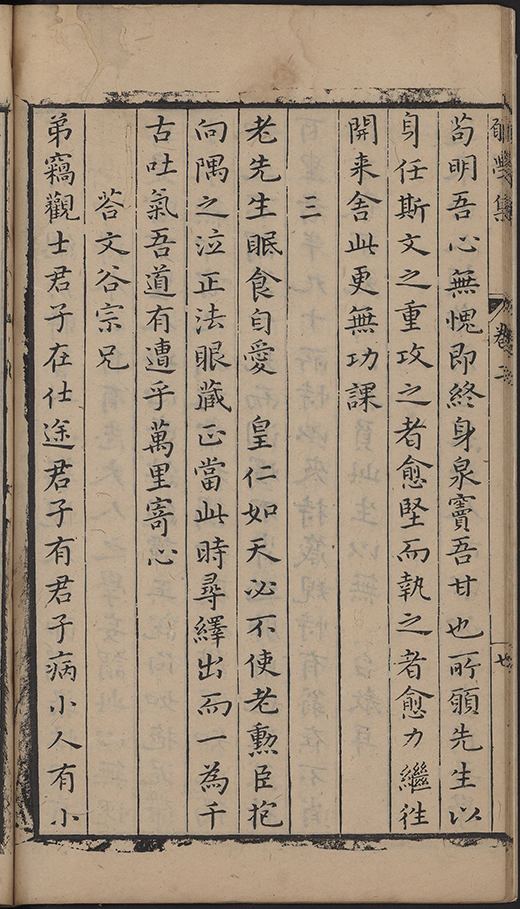 集 卷
苟明吾心無愧即終身泉竇吾甘也所願先生以
身任斯文之重攻之者愈堅而執之者愈力繼往
開来舍此更無功課
三
老先生眠食自愛 皇仁如天必不使老勲臣抱
向隅之泣正法眼藏正當此時尋繹出而一為千
古吐氣吾道有遭乎萬里寄心
荅文谷宗兄
弟竊觀士君子在仕途君子有君子病小人有小